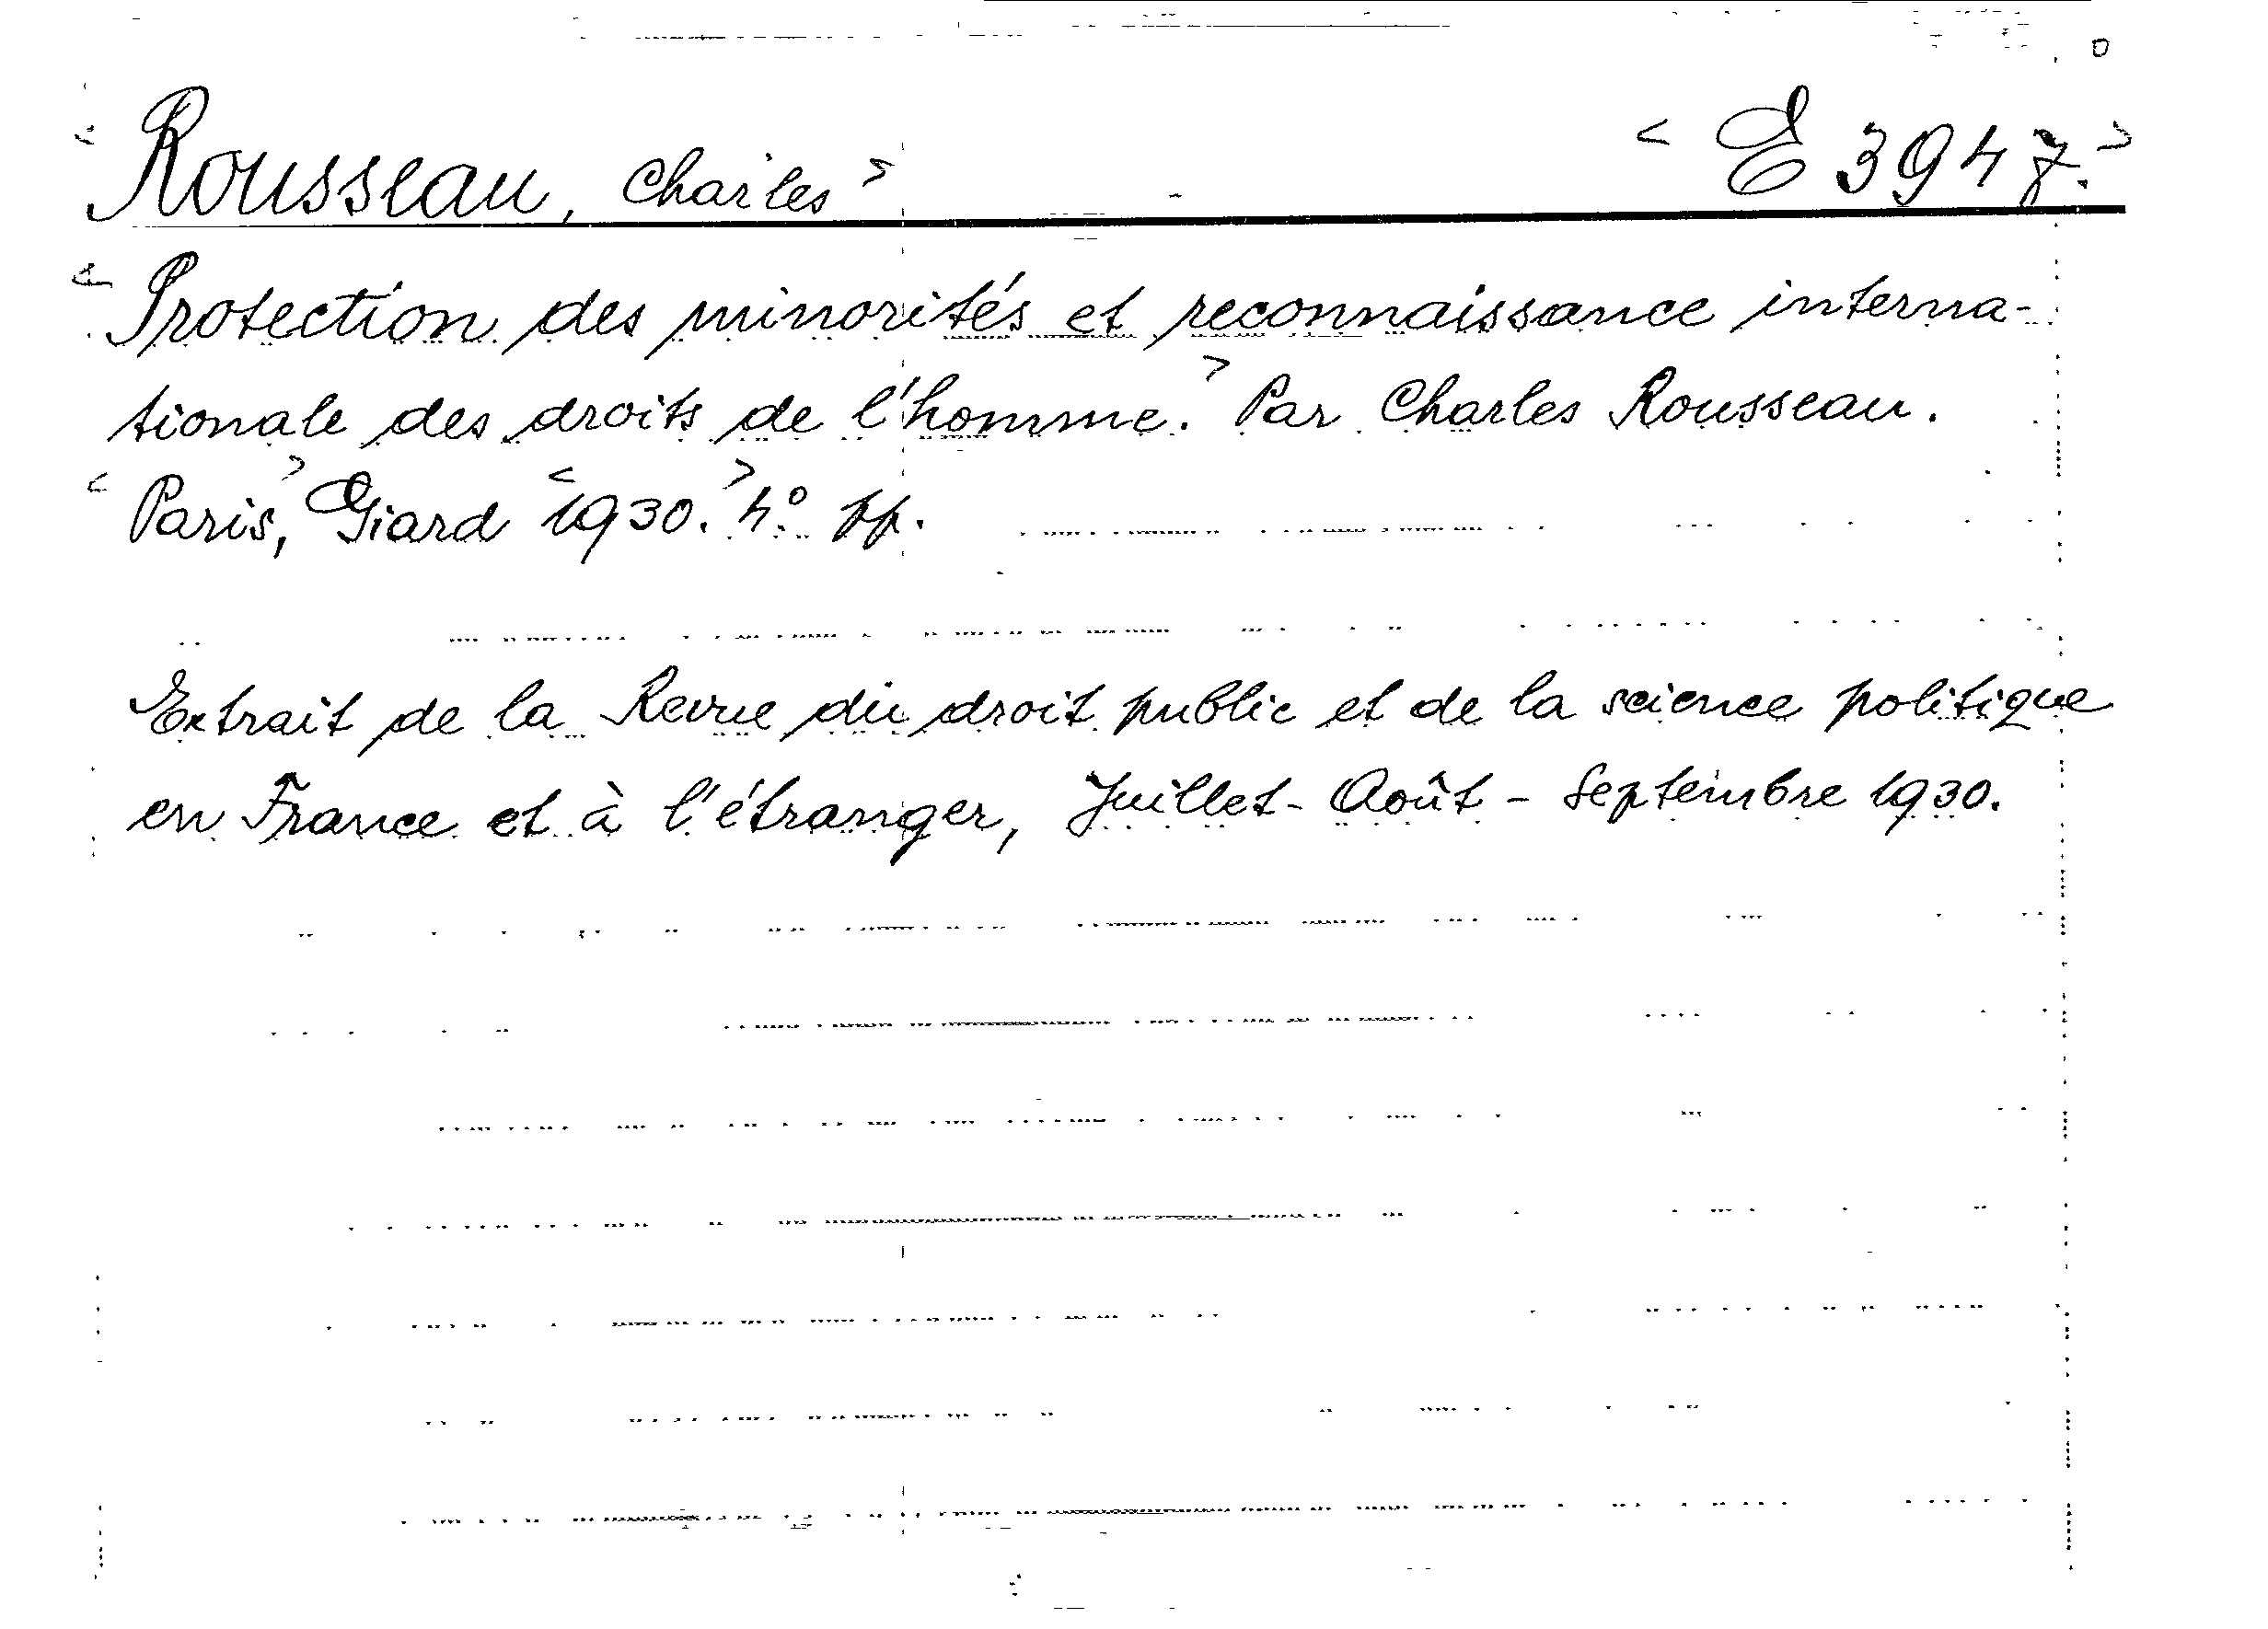 < Rousseau, Charles > < E 3947. >
< Protection des minorités et reconnaissance interna-
tionale des droits de l'homme. > Par Charles Rousseau.
< Paris, > Giard < 1930. > 4° pp.
Extrait de la Revue du droit public et de la science politique
en France et à l'étranger, Juillet - Août - Septembre 1930.